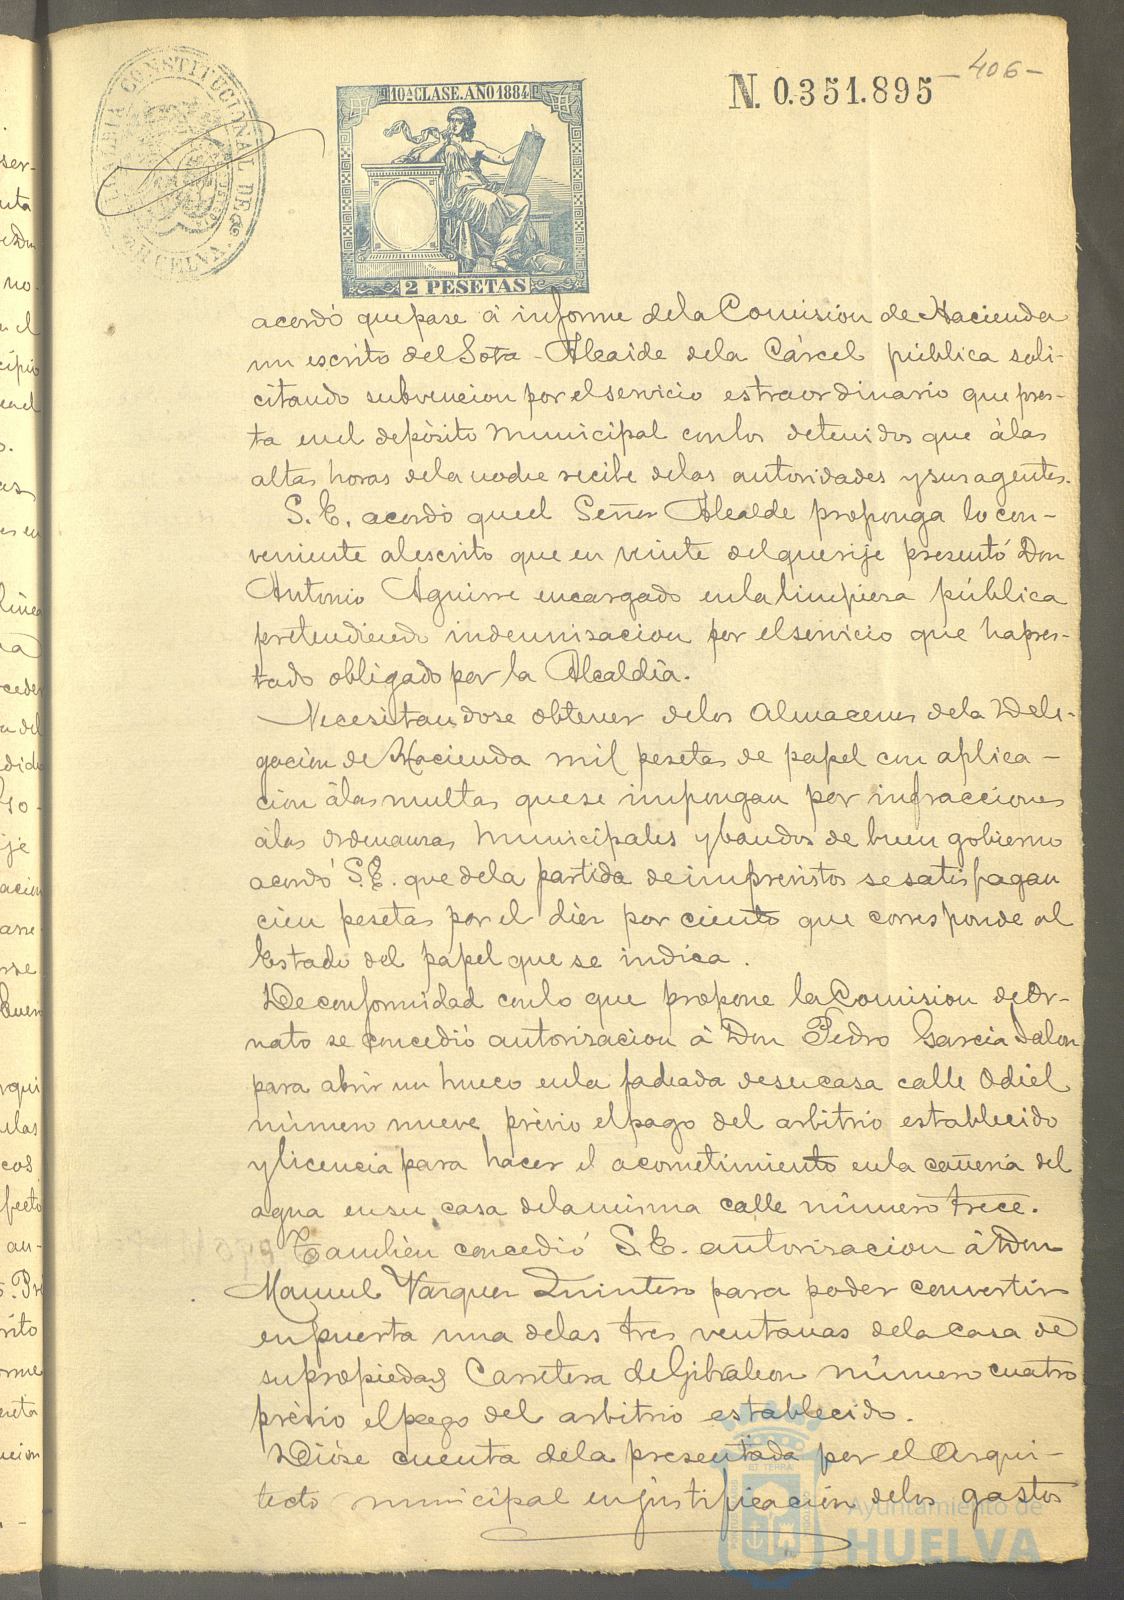 -406-
N. 0.351.895
ALCALDIA CONSTITUCIONAL DE HUELVA
10ª CLASE. AÑO 1884
2 PESETAS
acordó que pase á informe de la Comisión de Hacienda
un escrito del Sota-Alcaide de la Cárcel pública soli-
citando subvencion por el servicio estraordinario que pres-
ta en el depósito Municipal con los detenidos que á las
altas horas de la noche recibe de las autoridades y sus agentes.
S. E. acordó que el Señor Alcalde proponga lo con-
veniente al escrito que en veinte del que rije presentó Don
Antonio Aguirre encargado en la limpiesa pública
pretendiendo indemnisacion por el servicio que ha pres-
tado obligado por la Alcaldía.
Necesitandose obtener de los almacenes de la Dele-
gación de Hacienda mil pesetas de papel con aplica-
ción á las multas que se impongan por infracciones
á las ordenanzas Municipales y bandos de buen gobierno
acordó S. E. que de la partida de imprevistos se satisfagan
cien pesetas por el diez por ciento que corresponde al
Estado del papel que se indica.
De conformidad con lo que propone la Comision de Or-
nato se concedió autorisacion á Don Pedro Garcia Jalon
para abrir un hueco en la fachada de su casa calle Odiel
número nueve prévio el pago del arbitrio establecido
y licencia para hacer el acometimiento en la cañeria del
agua en su casa de la misma calle número trece.
Tambien concedió S. E. autorisacion á Don
Manuel Vazquez Quintero para poder convertir
en puerta una de las tres ventanas de la casa de
su propiedad Carretera de Gibraleon número cuatro
prévio el pago del arbitrio establecido.
Dióse cuenta de la presentada por el Arqui-
tecto municipal en justificación de los gastos
Ayuntamiento de
HUELVA